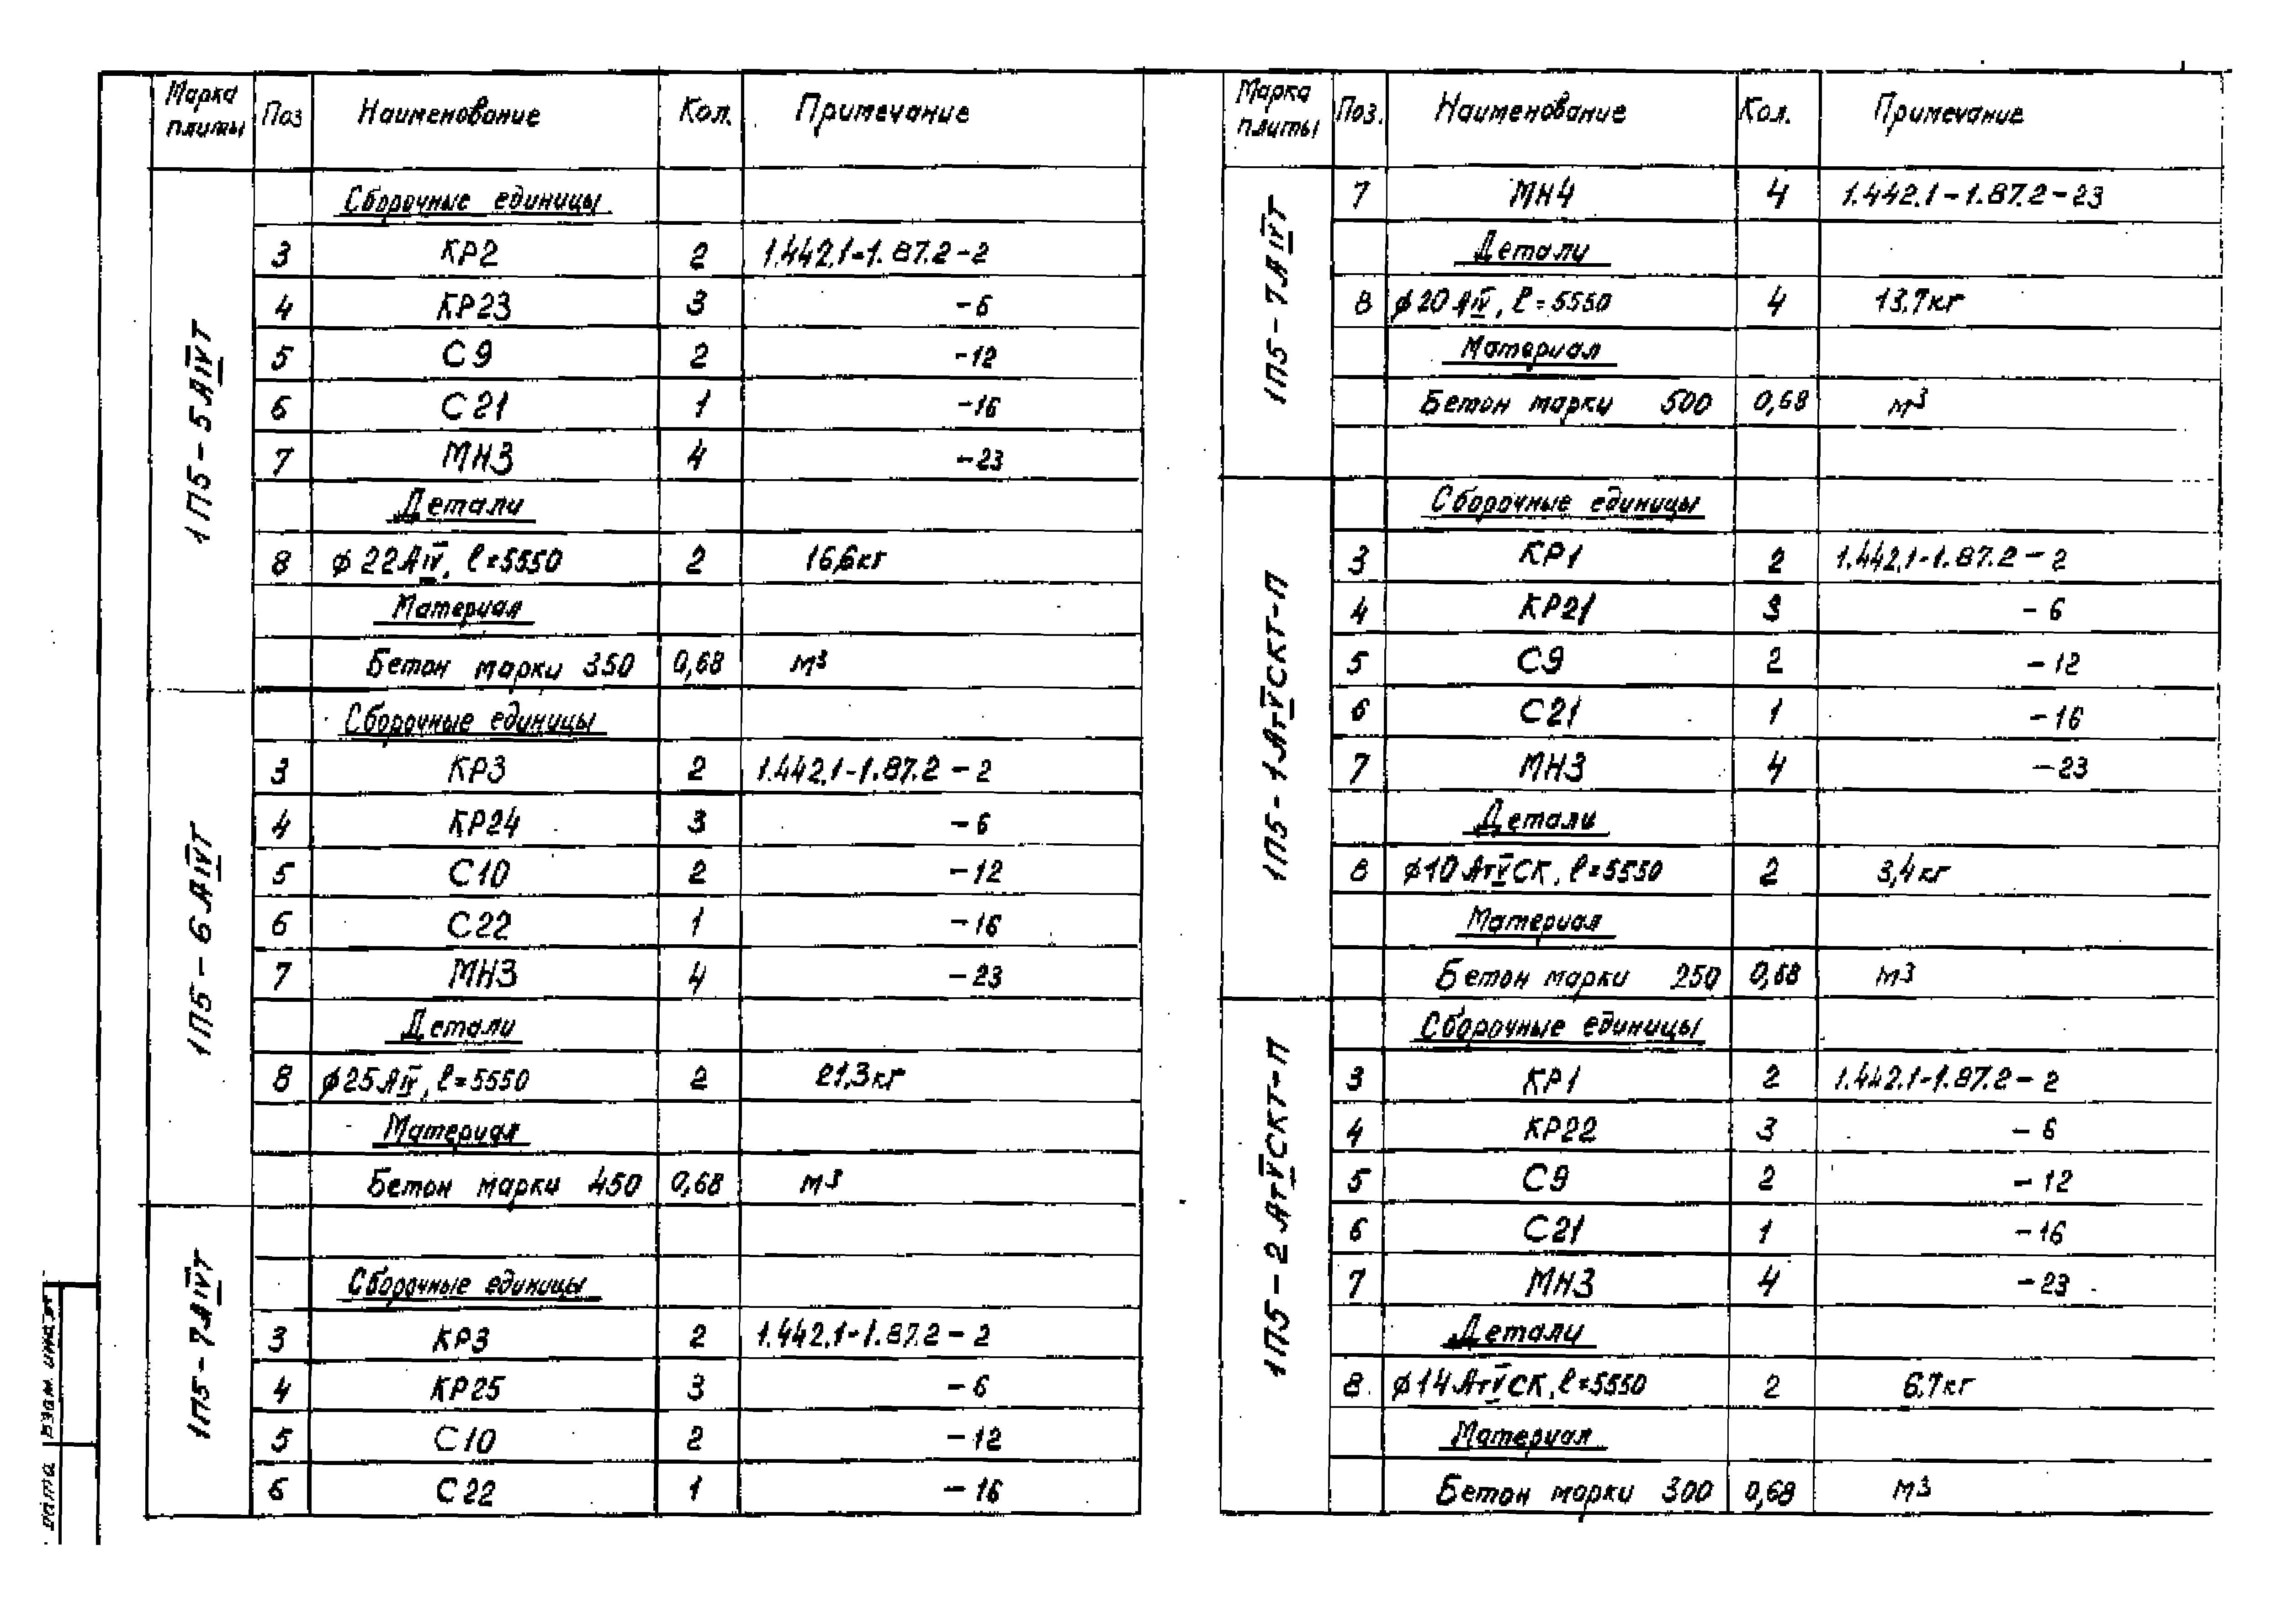 Марка плиты Поз Наименование Кол. Примечание
1П5-5АIVТ
Сборочные единицы
3 КР2 2 1.442.1-1.87.2-2
4 КР23 3 -6
5 С9 2 -12
6 С21 1 -16
7 МН3 4 -23
Детали
8 ϕ22АIV, l=5550 2 16,6кг
Материал
Бетон марки 350 0,68 м³
1П5-6АIVТ
Сборочные единицы
3 КР3 2 1.442.1-1.87.2-2
4 КР24 3 -6
5 С10 2 -12
6 С22 1 -16
7 МН3 4 -23
Детали
8 ϕ25АIV, l=5550 2 21,3кг
Материал
Бетон марки 450 0,68 м³
1П5-7АIVТ
Сборочные единицы
3 КР3 2 1.442.1-1.87.2-2
4 КР25 3 -6
5 С10 2 -12
6 С22 1 -16
Марка плиты Поз. Наименование Кол. Примечание
1П5-7АIVТ
7 МН4 4 1.442.1-1.87.2-23
Детали
8 ϕ20АIV, l=5550 4 13.7кг
Материал
Бетон марки 500 0,68 м³
1П5-1АтVСКТ-П
Сборочные единицы
3 КР1 2 1.442.1-1.87.2-2
4 КР21 3 -6
5 С9 2 -12
6 С21 1 -16
7 МН3 4 -23
Детали
8 ϕ10АтVСК, l=5550 2 3,4кг
Материал
Бетон марки 250 0,68 м³
1П5-2АтVСКТ-П
Сборочные единицы
3 КР1 2 1.442.1-1.87.2-2
4 КР22 3 -6
5 С9 2 -12
6 С21 1 -16
7 МН3 4 -23
Детали
8. ϕ14АтVСК, l=5550 2 6.7кг
Материал
Бетон марки 300 0,68 м³
Взам. инв. №
дата